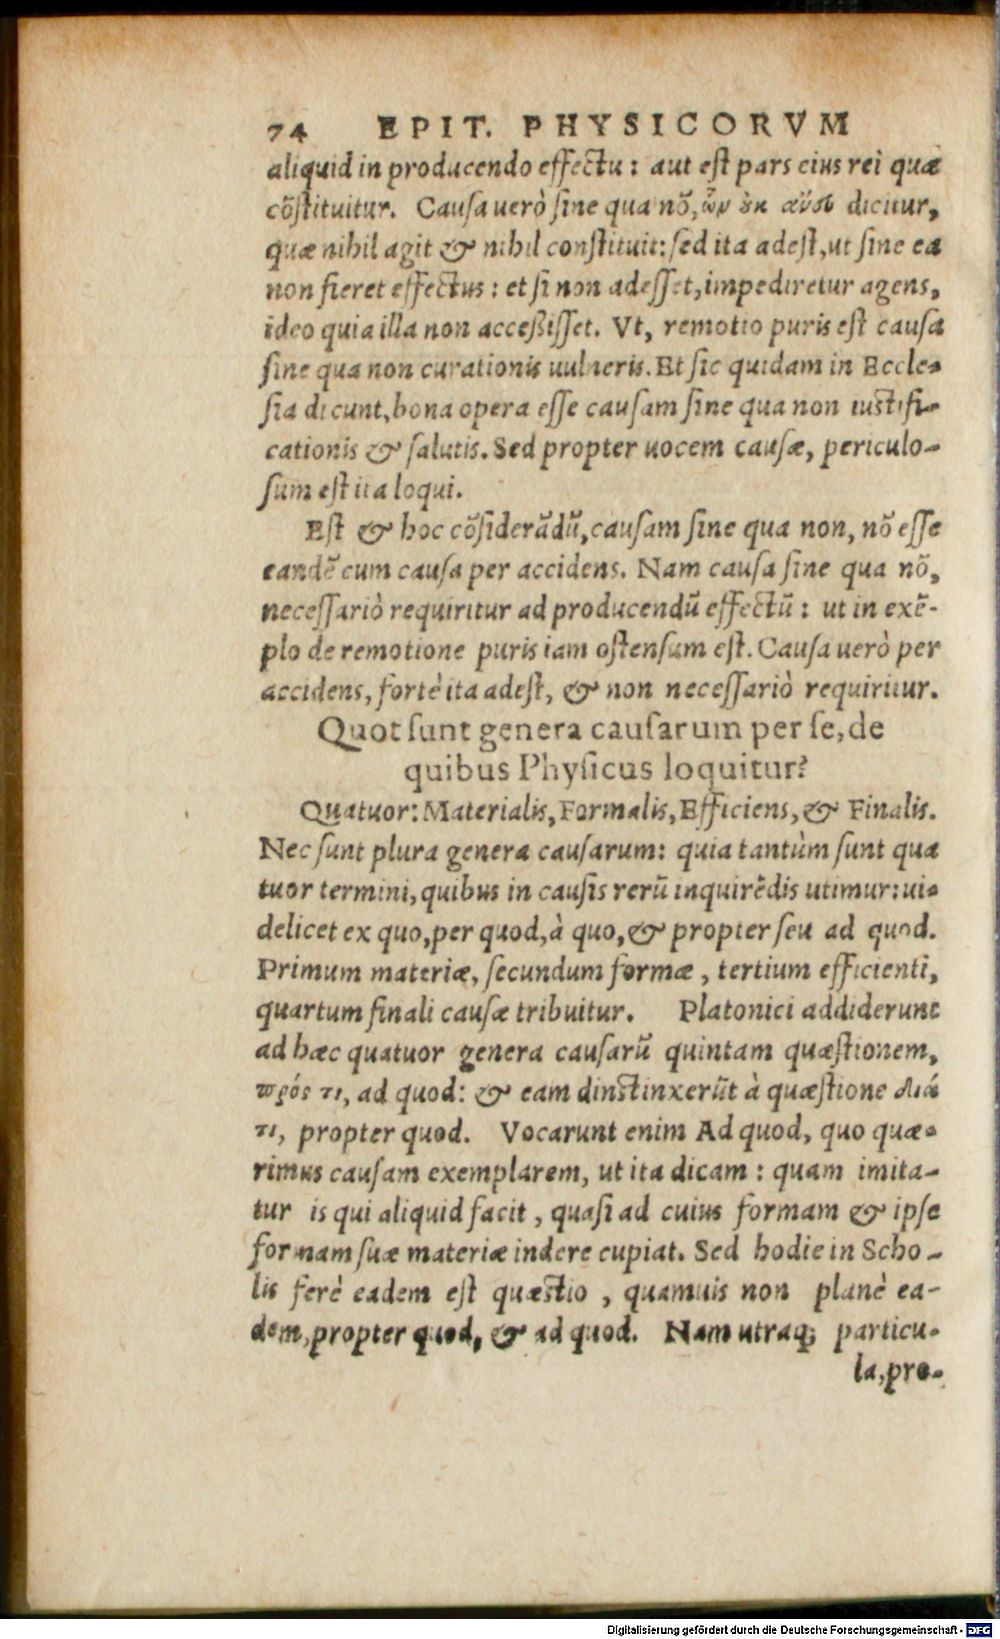 74 EPIT. PHYSICORVM
aliquid in producendo effectu: aut est pars eius rei quæ
cõstituitur. Causa uerò sine qua nõ, ὧν οὐκ ἄνευ dicitur,
quæ nihil agit & nihil constituit: sed ita adest, ut sine ea
non fieret effectus: et si non adesset, impediretur agens,
ideo quia illa non accessisset. Vt, remotio puris est causa
sine qua non curationis uulneris. Et sic quidam in Eccle-
sia dicunt, bona opera esse causam sine qua non iustifi-
cationis & salutis. Sed propter uocem causæ, periculo-
sum est ita loqui.
Est & hoc cõsiderãdũ, causam sine qua non, nõ esse
eandẽ cum causa per accidens. Nam causa sine qua nõ,
necessariò requiritur ad producendũ effectũ: ut in exẽ-
plo de remotione puris iam ostensum est. Causa uerò per
accidens, fortè ita adest, & non necessariò requiritur.
Quot sunt genera causarum per se, de
quibus Physicus loquitur?
Quatuor: Materialis, Formalis, Efficiens, & Finalis.
Nec sunt plura genera causarum: quia tantùm sunt qua
tuor termini, quibus in causis rerũ inquirẽdis utimur: ui-
delicet ex quo, per quod, à quo, & propter seu ad quod.
Primum materiæ, secundum formæ, tertium efficienti,
quartum finali causæ tribuitur. Platonici addiderunt
ad hæc quatuor genera causarũ quintam quæstionem,
πρός τι, ad quod: & eam dinstinxerũt à quæstione διά
τι, propter quod. Vocarunt enim Ad quod, quo quæ-
rimus causam exemplarem, ut ita dicam: quam imita-
tur is qui aliquid facit, quasi ad cuius formam & ipse
formam suæ materiæ indere cupiat. Sed hodie in Scho-
lis ferè eadem est quæstio, quamuis non planè ea-
dem, propter quod, & ad quod. Nam utraq; particu-
la, pro-
Digitalisierung gefördert durch die Deutsche Forschungsgemeinschaft - DFG